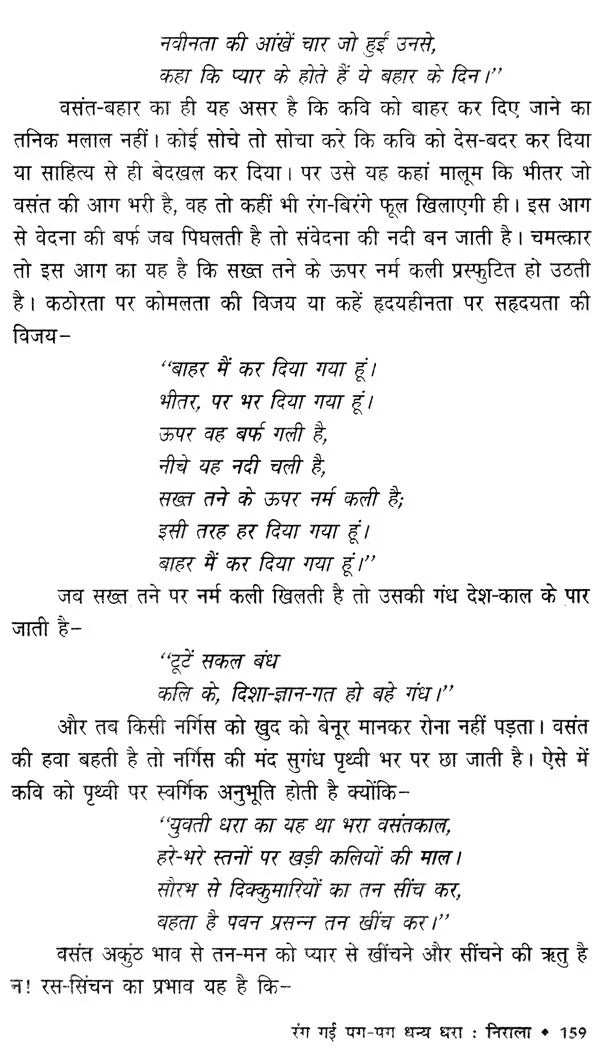 नवीनता की आंखें चार जो हुईं उनसे,
कहा कि प्यार के होते हैं ये बहार के दिन।”
वसंत-बहार का ही यह असर है कि कवि को बाहर कर दिए जाने का
तनिक मलाल नहीं। कोई सोचे तो सोचा करे कि कवि को देस-बदर कर दिया
या साहित्य से ही बेदखल कर दिया। पर उसे यह कहां मालूम कि भीतर जो
वसंत की आग भरी है, वह तो कहीं भी रंग-बिरंगे फूल खिलाएगी ही। इस आग
से वेदना की बर्फ जब पिघलती है तो संवेदना की नदी बन जाती है। चमत्कार
तो इस आग का यह है कि सख्त तने के ऊपर नर्म कली प्रस्फुटित हो उठती
है। कठोरता पर कोमलता की विजय या कहें हृदयहीनता पर सहृदयता की
विजय–
“बाहर मैं कर दिया गया हूं।
भीतर, पर भर दिया गया हूं।
ऊपर वह बर्फ गली है,
नीचे यह नदी चली है,
सख्त तने के ऊपर नर्म कली है;
इसी तरह हर दिया गया हूं।
बाहर मैं कर दिया गया हूं।”
जब सख्त तने पर नर्म कली खिलती है तो उसकी गंध देश-काल के पार
जाती है–
“टूटें सकल बंध
कलि के, दिशा-ज्ञान-गत हो बहे गंध।”
और तब किसी नर्गिस को खुद को बेनूर मानकर रोना नहीं पड़ता। वसंत
की हवा बहती है तो नर्गिस की मंद सुगंध पृथ्वी भर पर छा जाती है। ऐसे में
कवि को पृथ्वी पर स्वर्गिक अनुभूति होती है क्योंकि–
“युवती धरा का यह था भरा वसंतकाल,
हरे-भरे स्तनों पर खड़ी कलियों की माल।
सौरभ से दिक्कुमारियों का तन सींच कर,
बहता है पवन प्रसन्न तन खींच कर।”
वसंत अकुंठ भाव से तन-मन को प्यार से खींचने और सींचने की ऋतु है
न! रस-सिंचन का प्रभाव यह है कि–
रंग गई पग-पग धन्य धरा : निराला • 159